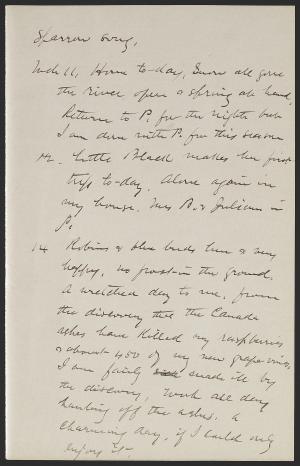 Sparrow song.
Mch 11, Home to-day, Snow all gone
the river open & spring at hand.
Return to P. for the night but
I am done with P. for this season
12. Little Black makes her first
trip to-day. Alone again in
my house. Mrs B. & Julian in
P.
14 Robins & blue birds here & very
happy, no frost in the ground.
A wretched day to me, from
the discovery that the Canada
ashes have killed my raspberries
& about 450 of my new grape-vines.
I am fairly sick made ill by
the discovery, work all day
hauling off the ashes. A
charming day, if I could only
enjoy it.